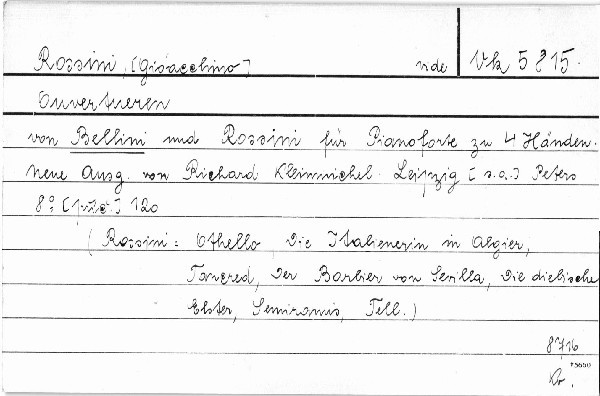 Rossini, [Gioacchino] nde Vk 5815.
Ouvertueren
von Bellini und Rossini für Pianoforte zu 4 Händen.
Neue Ausg. von Richard Kleinmichel. Leipzig [s.a.] Peters
8° [] 120
(Rossini: Othello, Die Italienerin in Algier,
Tancred, Der Barbier von Sevilla, Die diebische
Elster, Semiramis, Tell.)
8716
75650